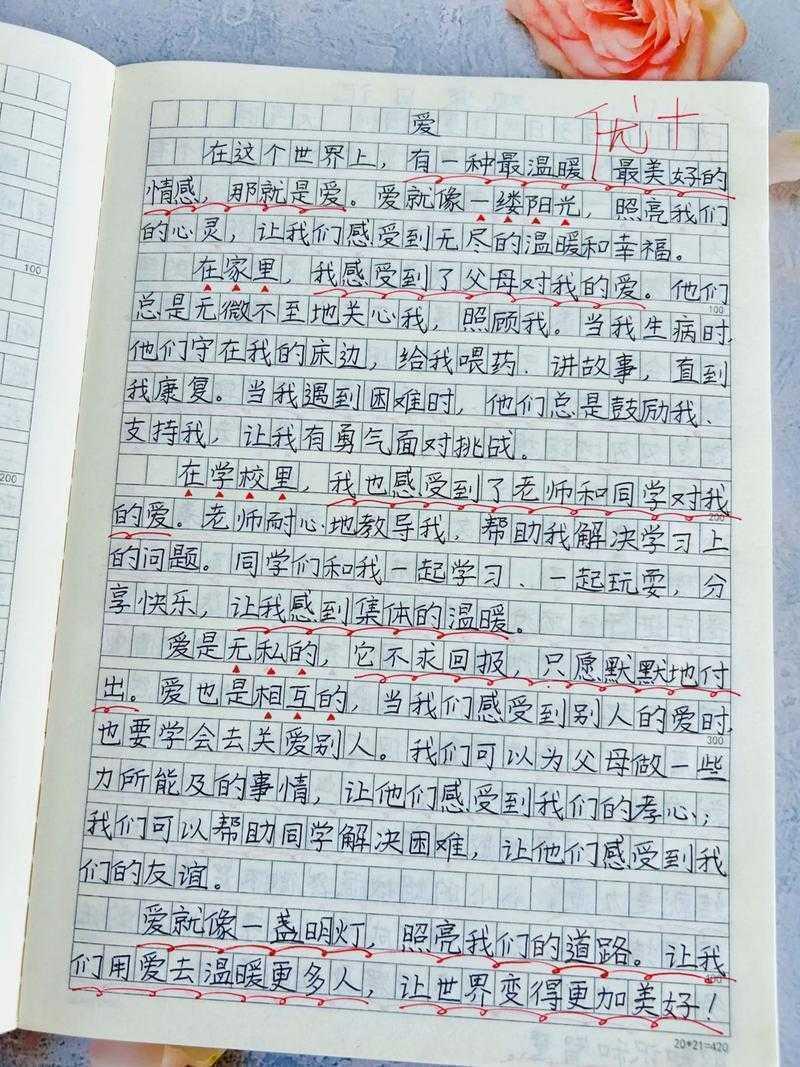 优+
爱
在这个世界上，有一种最温暖、最美好的
情感，那就是爱。爱就像一缕阳光，照亮我们
的心灵，让我们感受到无尽的温暖和幸福。
在家里，我感受到了父母对我的爱。他们
总是无微不至地关心我，照顾我。当我生病时，
他们守在我的床边，给我喂药、讲故事，直到
我康复。当我遇到困难时，他们总是鼓励我、
支持我，让我有勇气面对挑战。
在学校里，我也感受到了老师和同学对我
的爱。老师耐心地教导我，帮助我解决学习上
的问题。同学们和我一起学习、一起玩耍，分
享快乐，让我感到集体的温暖。
爱是无私的，它不求回报，只愿默默地付
出。爱也是相互的，当我们感受到别人的爱时，
也要学会去关爱别人。我们可以为父母做一些
力所能及的事情，让他们感受到我们的孝心；
我们可以帮助同学解决困难，让他们感受到我
们的友谊。
爱就像一盏明灯，照亮我们的道路。让我
们用爱去温暖更多人，让世界变得更加美好！
100
200
100
200
300
400
20*21=420